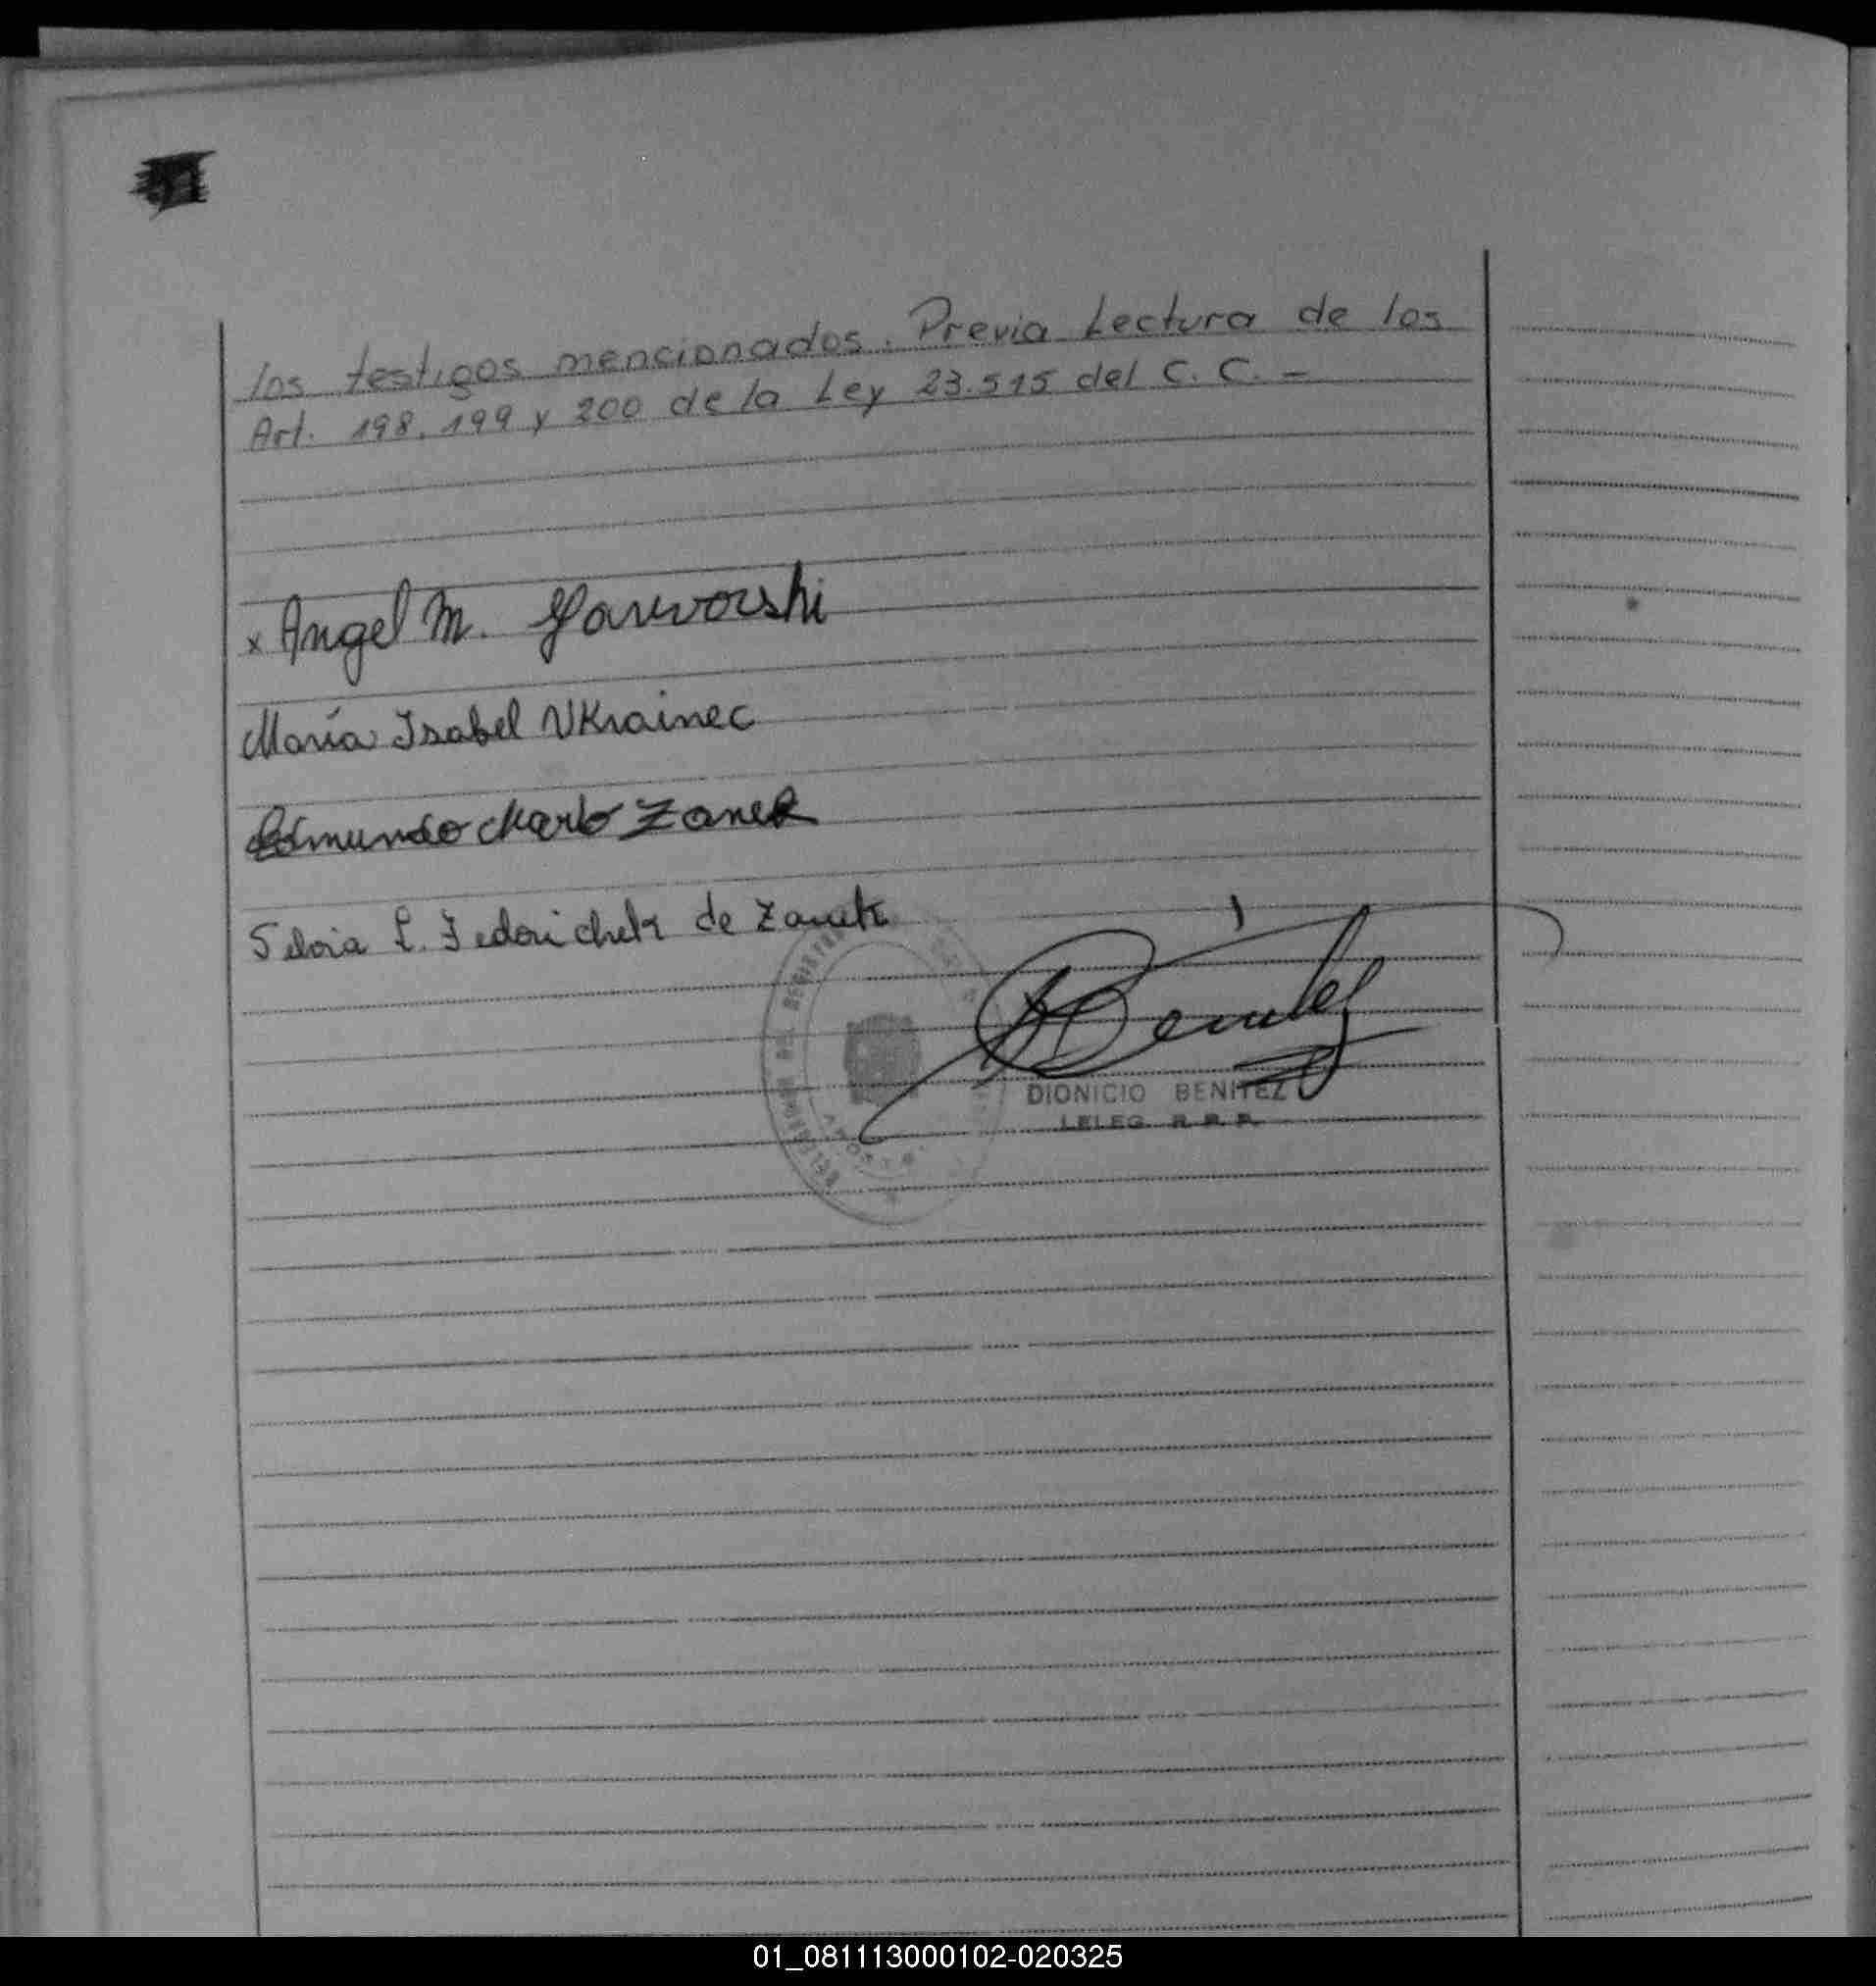 los testigos mencionados. Previa Lectura de los
Art. 198, 199 y 200 de la Ley 23.515 del C. C. -
x Angel M. Yarworski
María Isabel UKrainec
Edmundo Mario Zanek
Silvia L. Fedorichek de Zanek
DEL REGISTRO
DIONICIO BENITEZ
DELEG. R. P. P.
01_081113000102-020325